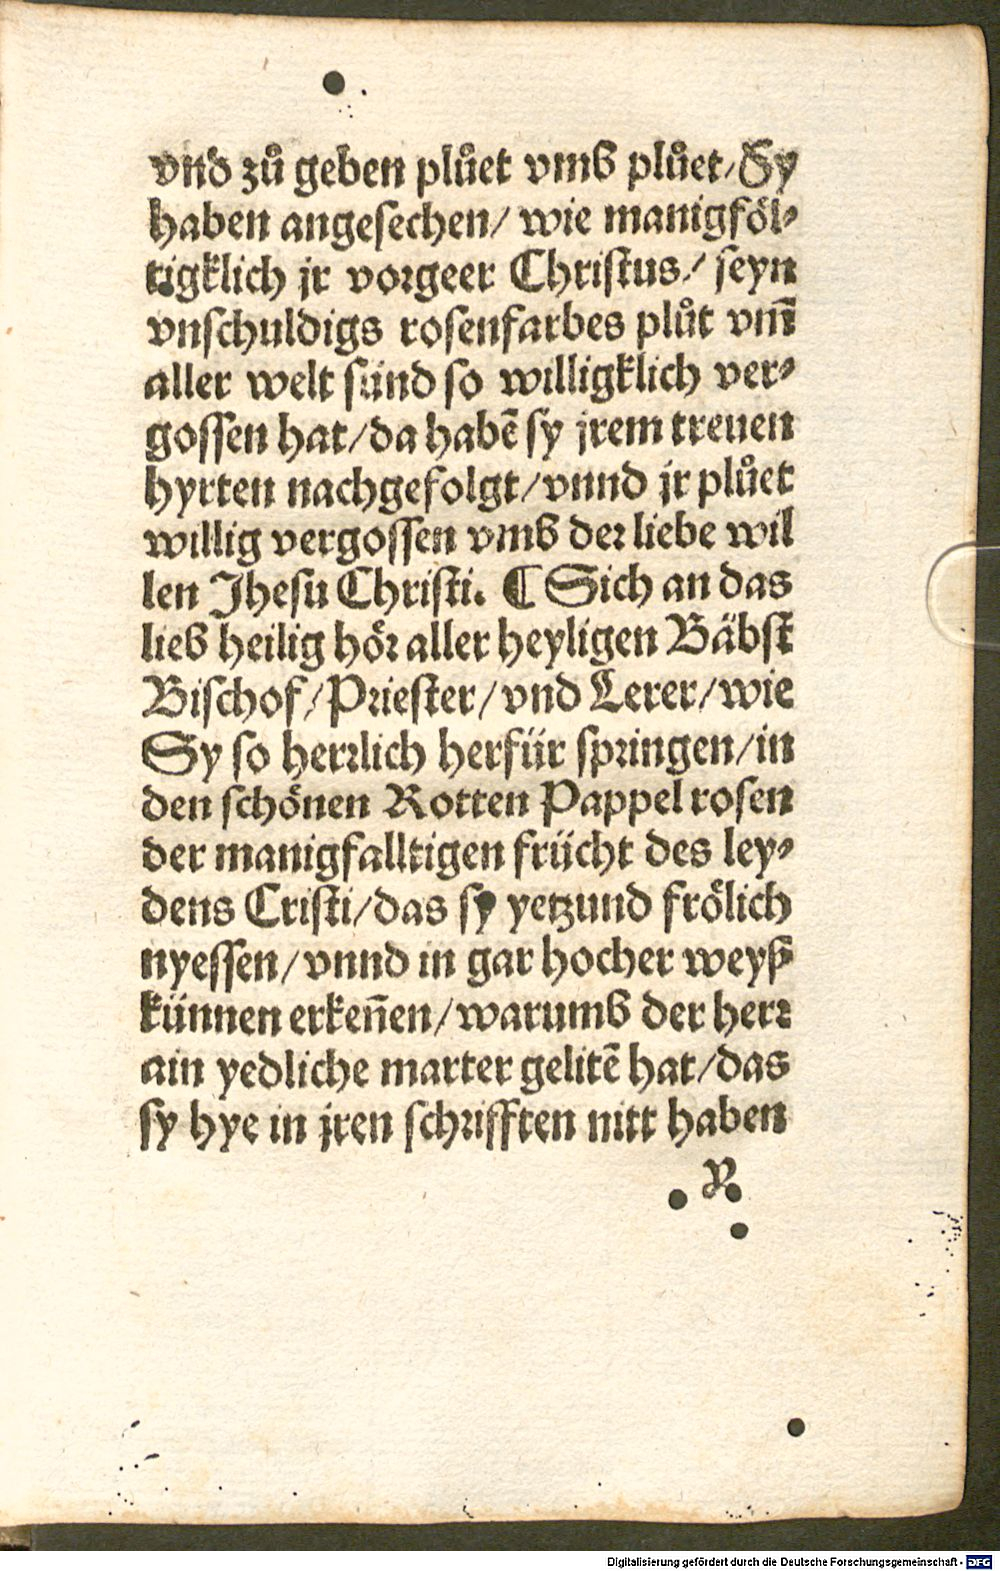 vnd zů geben plůet vmb plůet/ Sy
haben angesechen/ wie manigföl⸗
tigklich jr vorgeer Christus/ seyn
vnschuldigs rosenfarbes plůt vm̄
aller welt sünd so willigklich ver⸗
gossen hat/ da habē sy jrem treuen
hyrten nachgefolgt/ vnnd jr plůet
willig vergossen vmb der liebe wil
len Jhesu Christi. ¶ Sich an das
lieb heilig hör aller heyligen Bäbst
Bischof/ Priester/ vnd Lerer/ wie
Sy so herrlich herfür springen/ in
den schönen Rotten Pappel rosen
der manigfalltigen frücht des ley⸗
dens Cristi/ das sy yetzund frölich
nyessen/ vnnd in gar hocher weyß
künnen erkeñen/ warumb der herr
ain yedliche marter gelitē hat/ das
sy hye in jren schrifften nitt haben
v
Digitalisierung gefördert durch die Deutsche Forschungsgemeinschaft - DFG